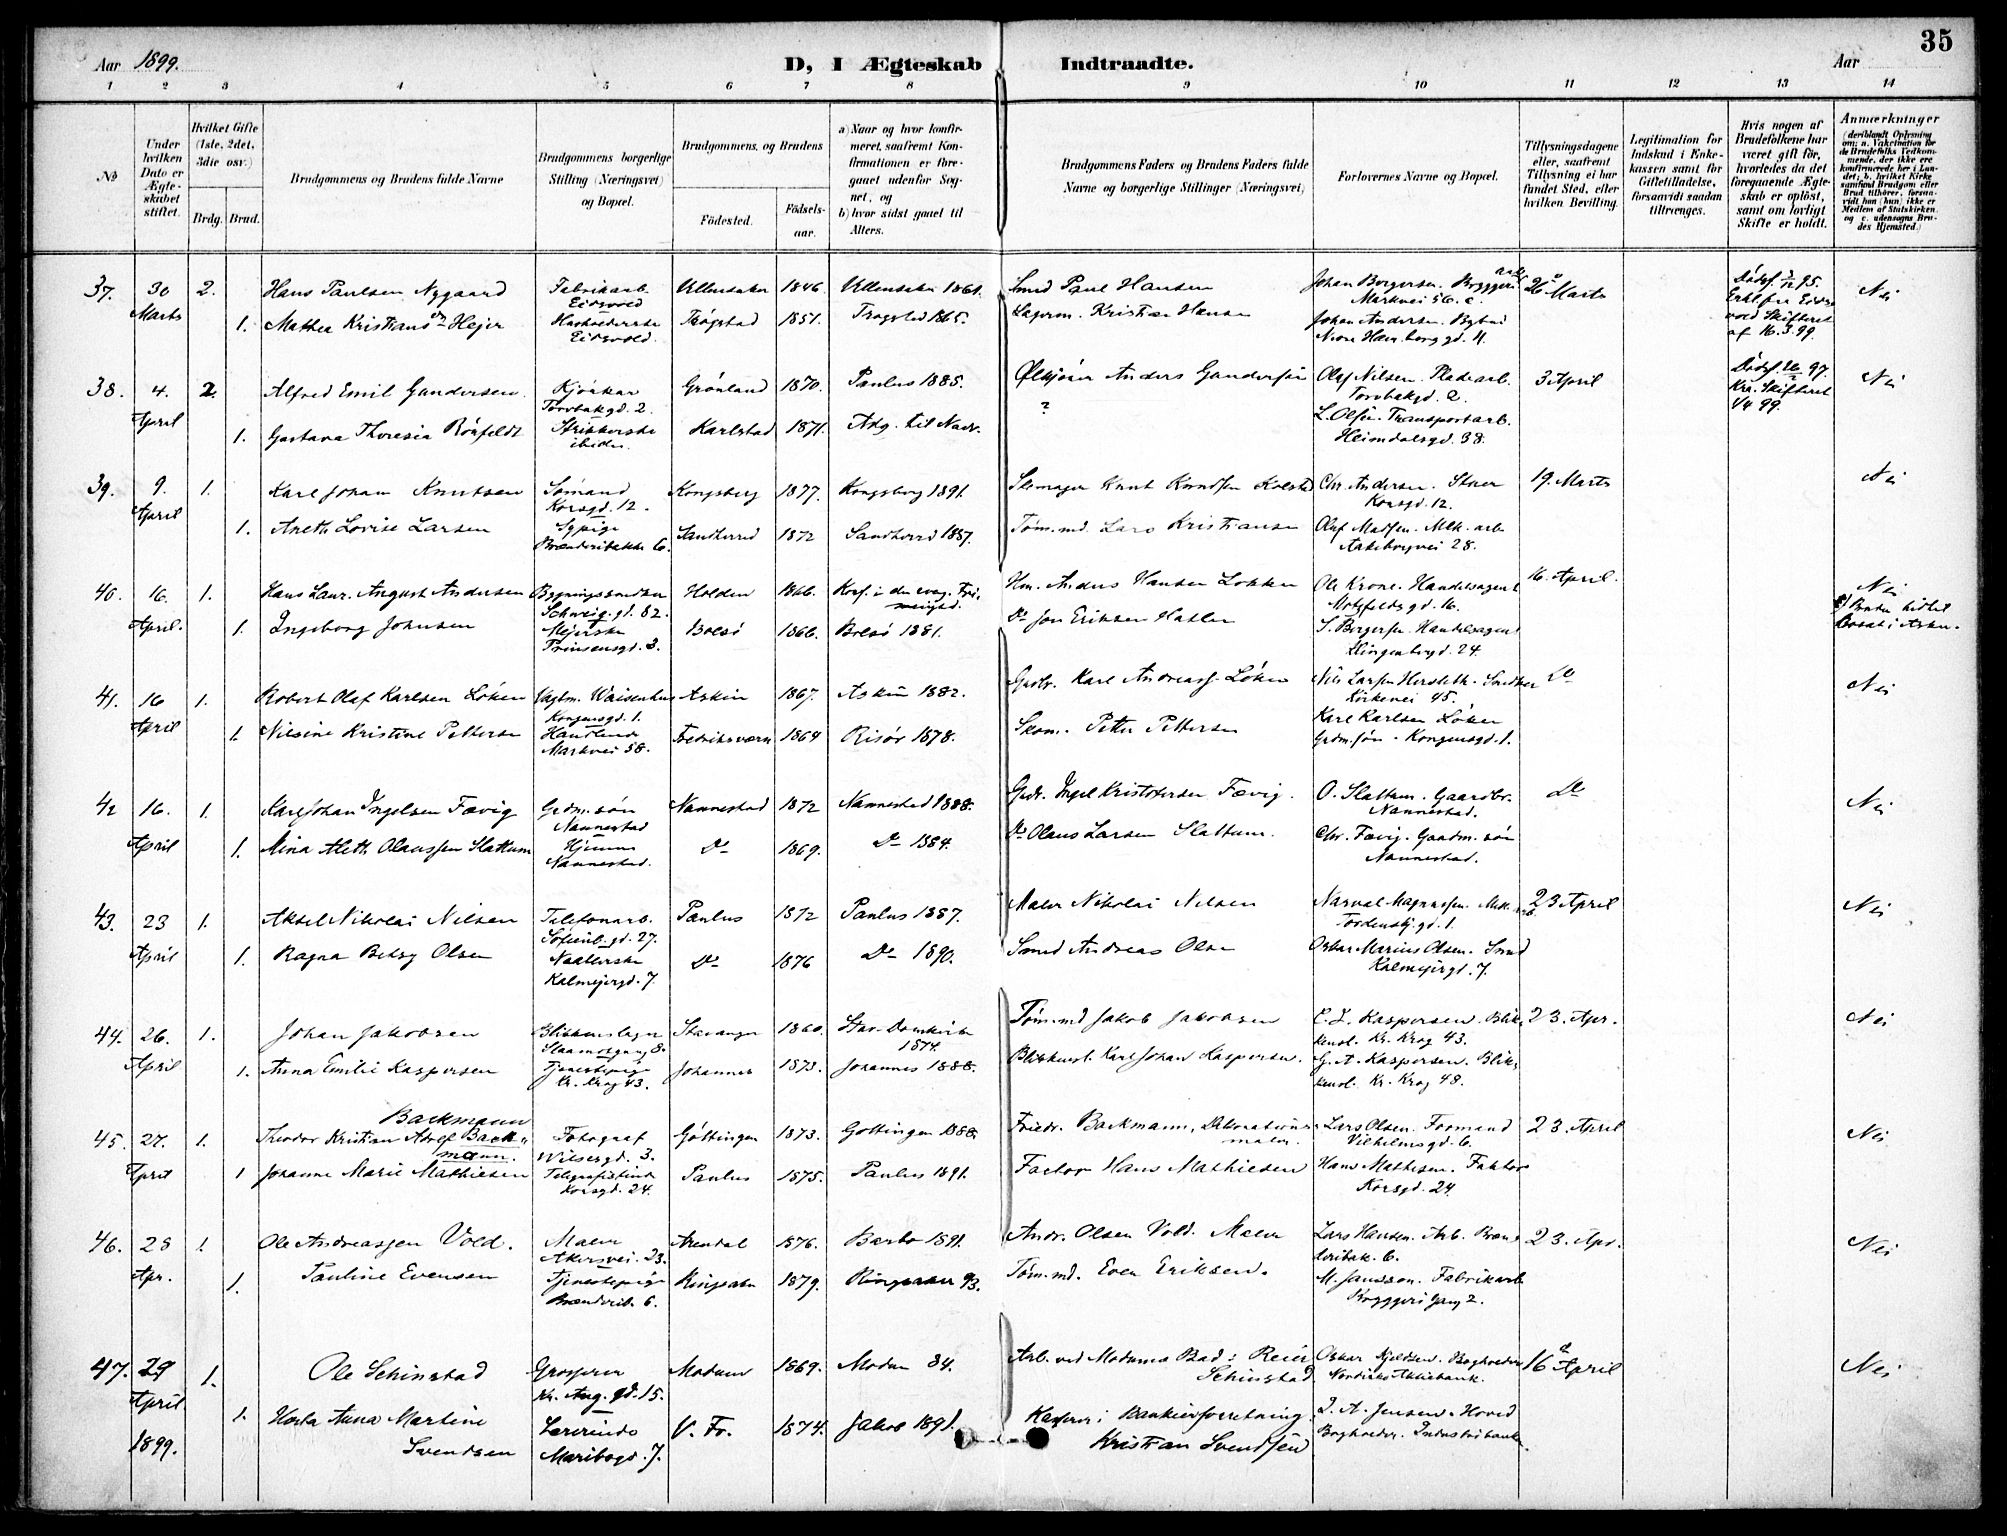 35
Aar 1899.
D, I Ægteskab Indtraadte.
Aar
1 2 3 4 5 6 7 8 9 10 11 12 13 14
No
Under hvilken Dato er Ægteskabet stiftet.
Hvilket Gifte (1ste, 2det, 3die osv.)
Brdg. Brud.
Brudgommens og Brudens fulde Navne
Brudgommens borgerlige Stilling (Næringsvei) og Bopæl.
Brudgommens og Brudens
Födested. Födselsaar.
a) Naar og hvor konfirmeret, saafremt Konfirmationen er foregaaet udenfor Sognet, og
b) hvor sidst gaaet til Alters.
Brudgommens Faders og Brudens Faders fulde Navne og borgerlige Stillinger (Næringsvei)
Forlovernes Navne og Bopæl.
Tillysningsdagene eller, saafremt Tillysning ei har fundet Sted, efter hvilken Bevilling.
Legitimation for Indskud i Enkekassen samt for Giftetilladelse, forsaavidt saadan tiltrænges.
Hvis nogen af Brudefolkene har været gift før, hvorledes da det foregaaende Ægteskab er oplöst, samt om lovligt Skifte er holdt.
Anmærkninger
37. 30 2. Hans Paulsen Nygaard Fabrikarb. Ullensaker 1846. Ullensaker 1861. Smed Paul Hansen Johan Borgersen 26 Marts Nei
Eidsvold Markvei 56. c.
Marts 1. Mathea Kristians Hejer Trøgstad 1851. Trøgstad 1865. Lagerm. Kristian Hansen Johan Andersen
Eidsvold.
af 16.3.99.
38. 4. 2. Alfred Emil Gundersen Grönland 1870. Paulus 1885. Anders Gundersen Olaf Nilsen. Pladearb. 3 April Nei
Torvbakgd. 2. Torvbakgd. 2. Kra. Skifteret
April 1. Gustava Theresia Rönfeldt Strikkerske Karlstad 1871. Adg. til Nadv. ? L. Olsen. Transportarb.
ibidem Heimdalsgd. 38.
39. 9. 1. Karl Johan Knutsen Sömand Kongsberg 1877. Kongsberg 1891. Knut Knudsen Chr. Andersen. 19. Marts Nei
Korsgd. 12. Korsgd. 12.
April 1. Areth Lovise Larsen Sypige Sandherred 1872 Sandherred 1887. Töm.md. Lars Kristiansen Olaf Madsen. Mek. arb
Brænderibakke 6. Aakebergvei 28.
40. 16. 1. Hans Laur. August Andersen Holden 1866. Konf. i den evang. Hm. Anders Hansen Løkken Ole Krone. Handelsagent 16. April. Nei
Schweig.gd. 82. Motzfelds gd. 16.
April. 1. Ingeborg Johnsen Mejerske Bolsö 1866. Bolsö 1881. Do Jon Eriksen S. Borgersen. Handelsagent
Prinsensgd. 3. Klingenberggd. 24.
41. 16 1. Robert Olaf Karlsen Löken Vagtm. Waisenhus Askim 1867. Askim 1882. Karl Andreas. Löken Nils Larsen Do Nei
Kongensgd. 1. Kirkevei 45.
April 1. Nilsine Kristine Pettersen Fredriksværn 1864 Risör 1878. Skom. Petter Pettersen Karl Karlsen Löken
Markvei 58. Grdm.sön. Kongensgd. 1.
42 16. 1. Karl Johan Ingelsen Fævig Grdm.sön Nannestad 1872 Nannestad 1888. Grdr. Ingel Kristofersen Fævig. O. Slattum. Gaardbr. Do Nei
Nannestad Nannestad.
April 1. Mina Aleth. Olaussen Slattum Hjemme Do 1869. Do 1884. Do Olaus Larsen Slattum. Chr. Fævig. Gaardm. sön
Nannestad. Nannestad.
43. 23 1. Aksel Nikolai Nilsen Telefonarb. Paulus 1872 Paulus 1887. Maler Nikolai Nilsen Narval Magnussen. 23 April Nei
Sofienb.gd. 27. Tordenskj.gd. 1.
April 1. Ragna Betsy Olsen Naatlerske Do 1876 Do 1890. Smed Andreas Olsen Oskar Marius Olsen. Smed
Kalmejergd. 7. Kalmejergd. 7.
44. 26. 1. Johan Jakobsen Blikkenslager Stavanger 1860. Stav. Domkirke Töm.md Jakob Jakobsen E. L. Kaspersen. Blik. 23. Apr. Nei
1874. kensl. Kr. Krog 43.
April 1. Anna Emilie Kaspersen Tjenestepige Johannes 1873. Johannes 1888. Blikkensl. Karl Johan Kaspersen. G. A. Kaspersen. Blik.
Kr. Krog 43. kensl. Kr. Krog 48.
Backmann
45. 27. 1. Theodor Kristian Adolf Backmann. Fotograf Göttingen 1873. Göttingen 1888. Friedr. Backmann, Dekorationsmaler. Lars Olsen. Formand 23. April Nei
Wilsesgd. 3. Vilhelmsgd. 6.
April 1 Johanne Marie Mathiesen Telegrafistinde Paulus 1875. Paulus 1891. Factor Hans Mathiesen Hans Mathisen. Faktor
Korsgd. 24. Korsgd. 24.
46. 28 1. Ole Andreassen Vold. Maler Arendal 1876. Barbo 1891. Andr. Olsen Vold. Maler Lars Hansen. Arb. 23. Apr. Nei
Akersvei. 23.
Apr. 1. Pauline Evensen Tjenestepige Ringsaker 1879. Ringsaker 93. Töm.md. Even Eriksen. M. Jansson. Fabrikarb
Brænderib. 6. Bryggeri gang 2.
47. 29 1. Ole Schinstad Grosserer Modum 1869. Modum 84. Arb. ved Modums Bad: Reier Schinstad Oskar Kjeldsen. Bogholder 16 April Nei
Kr. Aug. gd. 15. Nordiske Aktiebank.
April 1. Anna Martine Svendsen Lærerinde V. Fr. 1874. Jakob 1891. Kasserer i Bankierforretning Kristian Svendsen J. A. Jensen. Hovedbogholder. Industribanken
1899. Maribogd. 7.